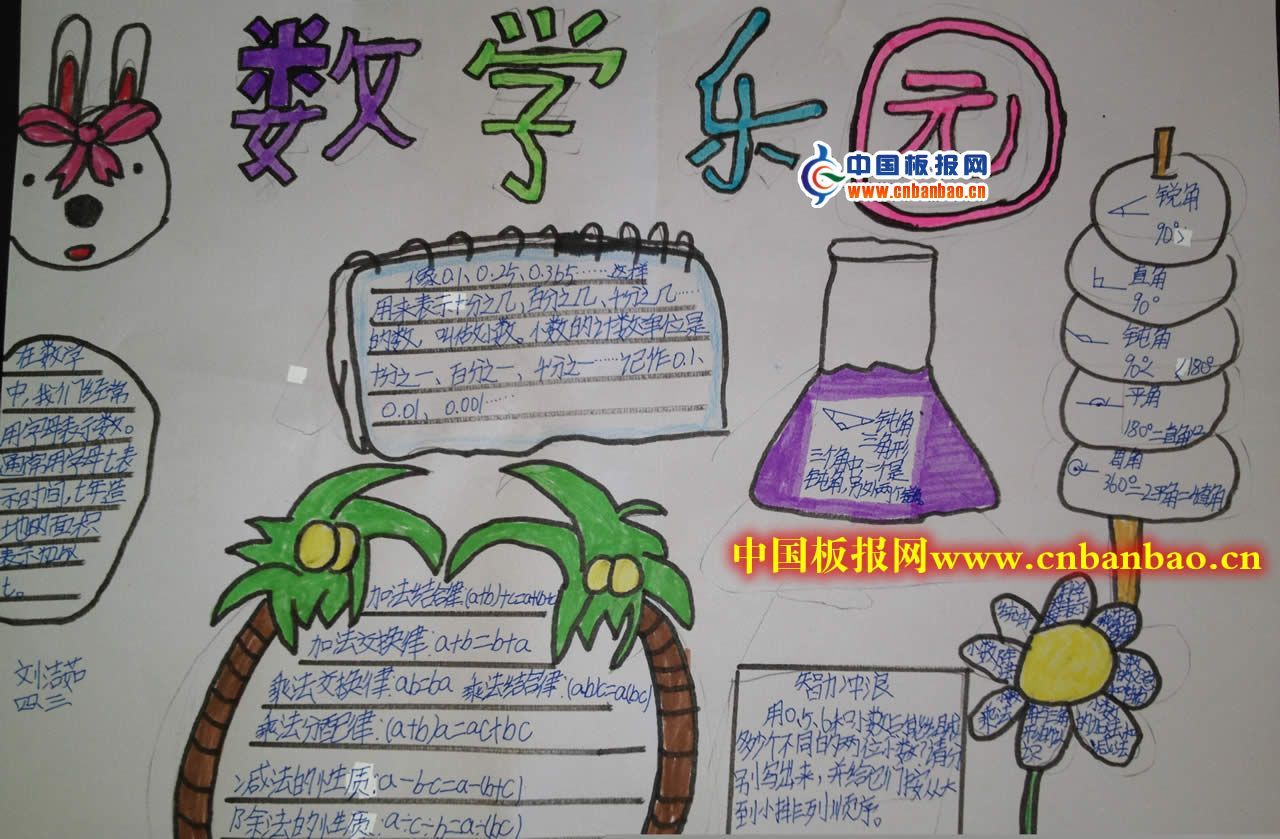 数学乐园
中国板报网
www.cnbanbao.cn
锐角
90°
直角
90°
钝角
90°< <180°
平角
180°=直角×2
周角
360°=2平角=4直角
像0.1、0.25、0.365……这样
用来表示十分之几、百分之几、千分之几……
的数,叫做小数。小数的计数单位是
十分之一、百分之一、千分之一……记作0.1、
0.01、0.001……
钝角
三角形
三个角中一个是
钝角,另外两个
在数学
中,我们经常
用字母表示数。
通常用字母t表
示时间,
地的面积
表示
t。
中国板报网www.cnbanbao.cn
加法结合律:(a+b)+c=a+(b+c)
加法交换律:a+b=b+a
乘法交换律:ab=ba 乘法结合律:(ab)c=a(bc)
乘法分配律:(a+b)a=ac+bc
减法的性质:a-b-c=a-(b+c)
除法的性质:a÷c÷b=a÷(bc)
四三
智力冲浪
用0、5、6和小数点能组成
多少个不同的两位小数?请分
别写出来,并给它们按从大
到小排列顺序。
统计
小数除
乘法